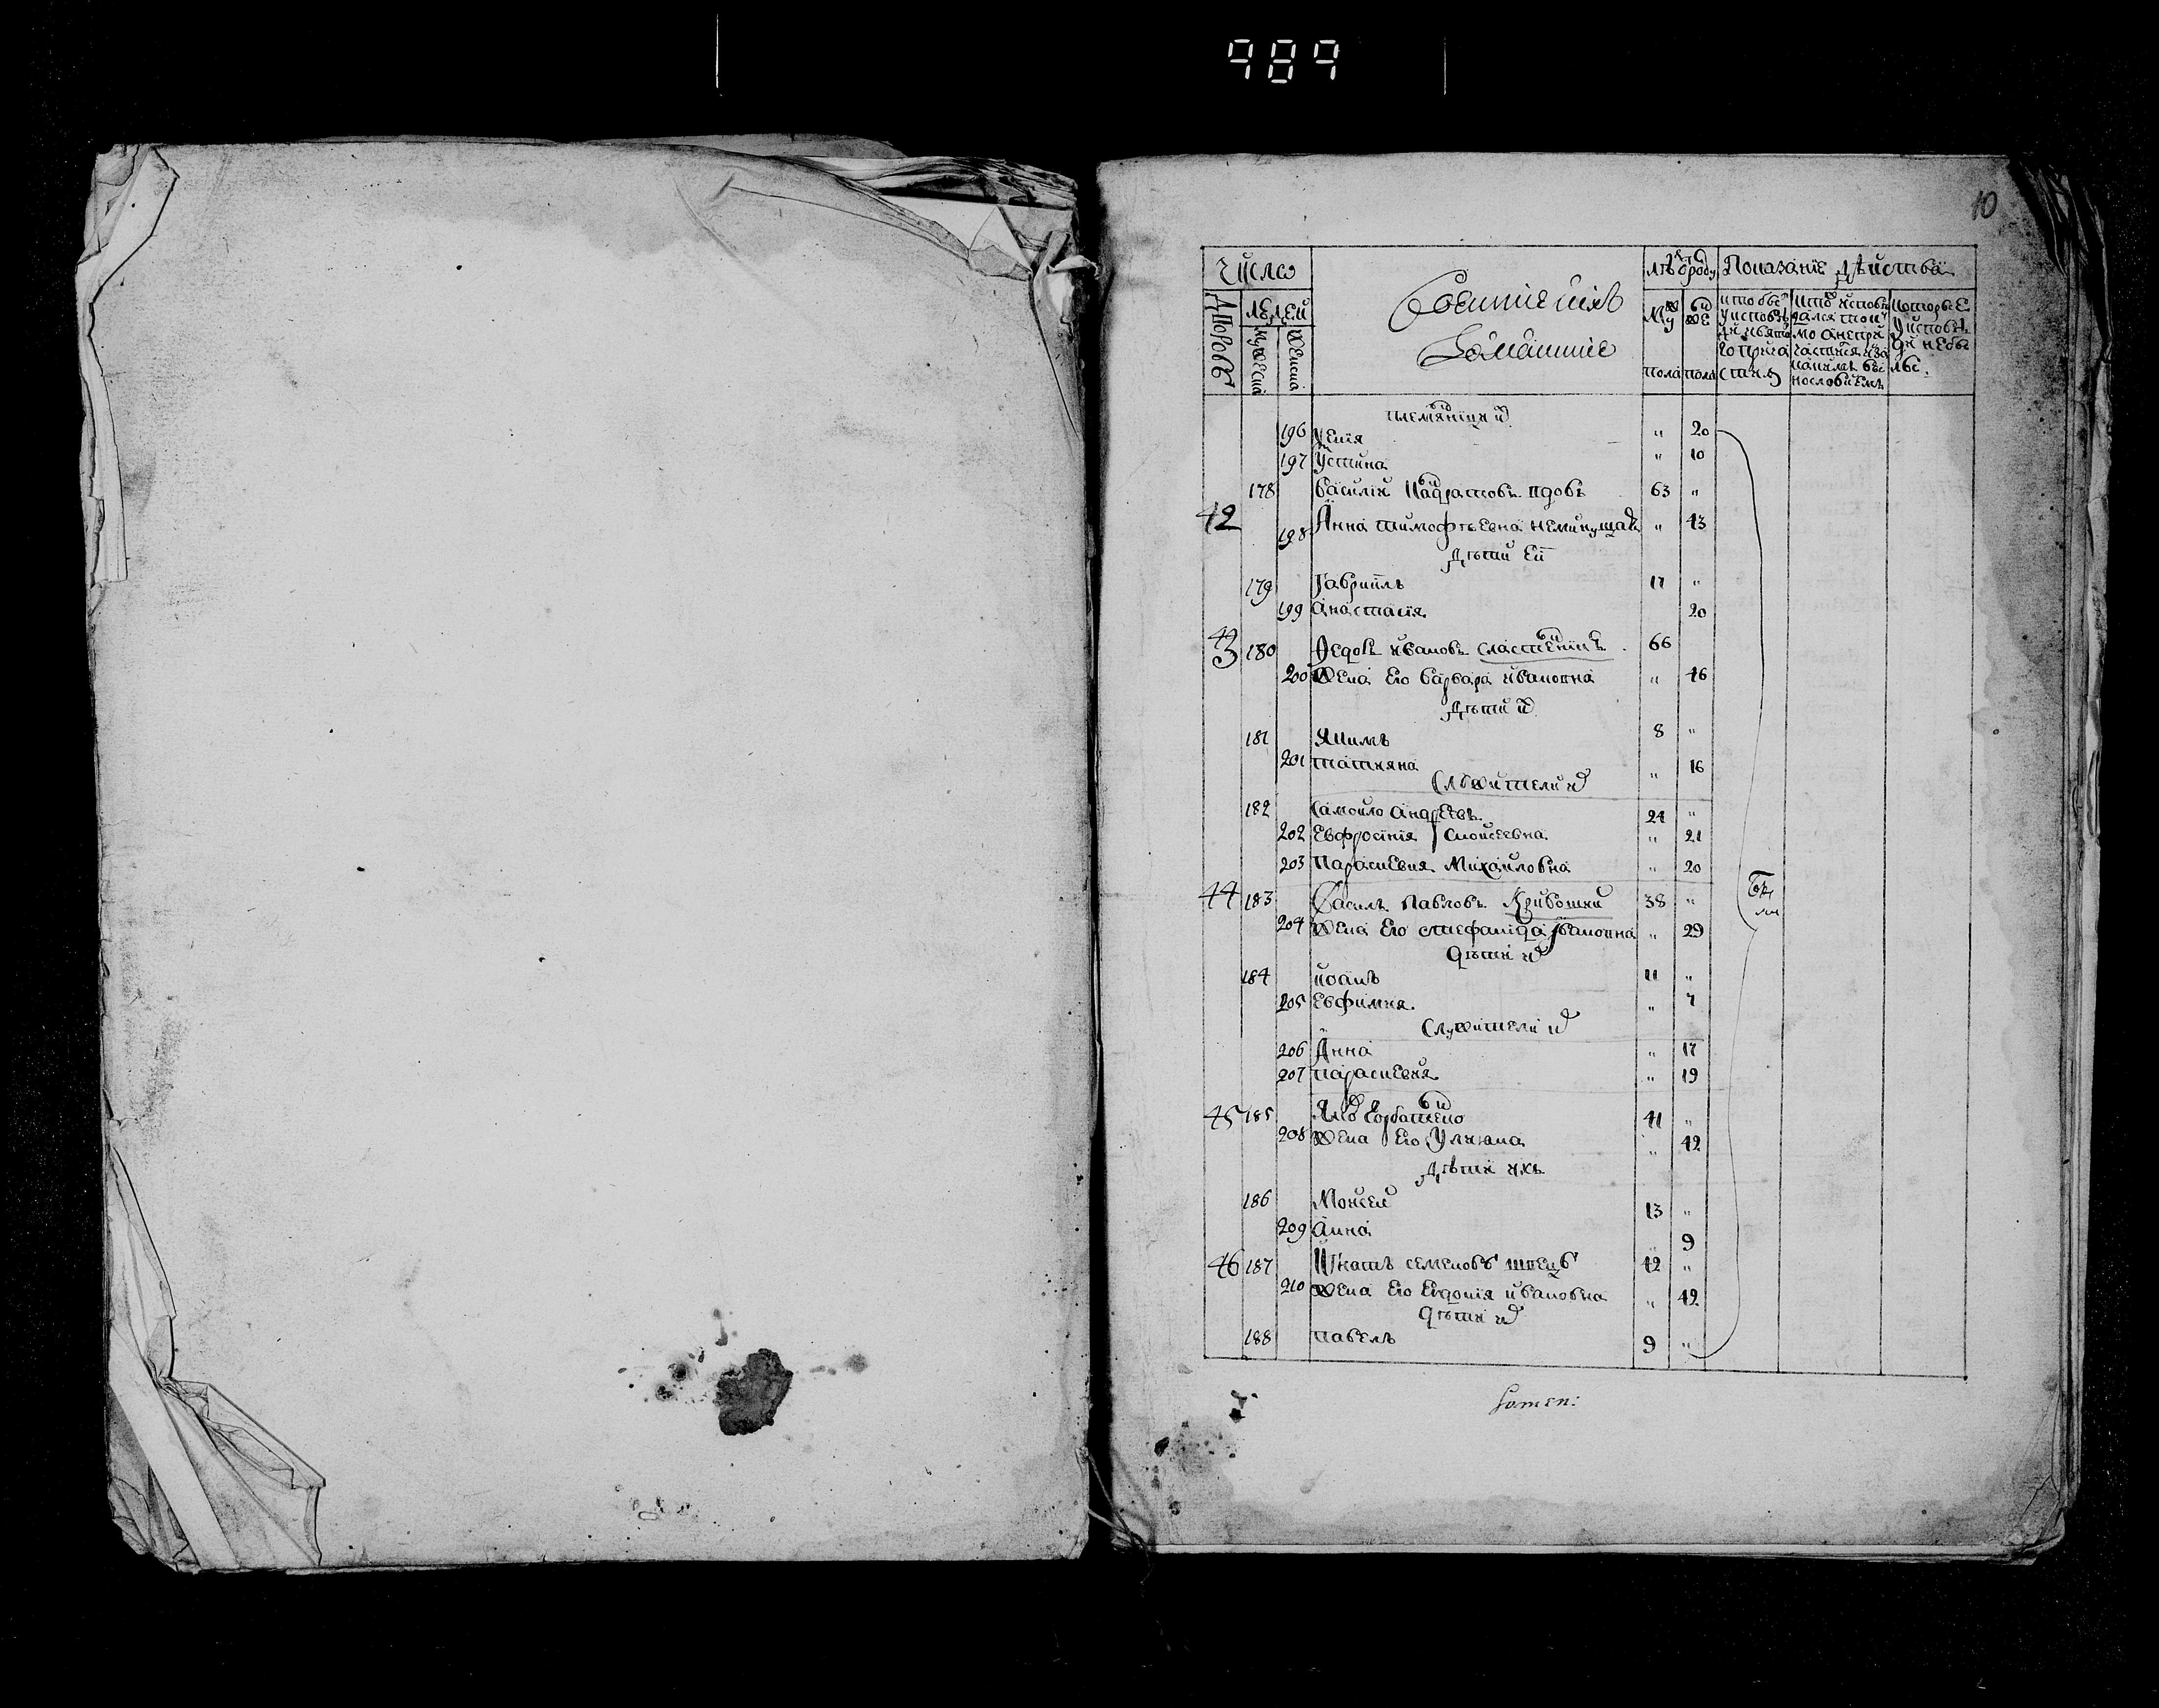 989
10
Число
Дворовъ
Людей
Мужеска
Женска
Воинскихъ
Домашние
Лѣтъ ѿ роду
Показание дѣйства
Муж
пола
Жен
пола
кто былъ у исповѣди и святаго причастия
кто исповѣдался токмо а не причастился и за каким винословиемъ
которые у исповѣди не были
племяница их
196 „ 20
197 Устина „ 10
178 Василий вдовъ 63 „
42 198 Анна Тимофѣевна „ 43
Дѣти ея
179 Гавриилъ 17 „
199 Анастасия 20
43 180 Федоръ Ивановъ Сластенникъ 66
200 Жена его Варвара Ивановна „ 46
Дѣти их
181 Якимъ 8 „
201 Татияна „ 16
Служители их
182 Самойло Андреевъ 24 „
202 Евфросиния Моисеевна „ 21
203 Параскевия Михайловна „ 20
44 183 Василь Павловъ Кривошей 38 „
204 Жена его Стефанида Ивановна „ 29
Дѣти их
184 Иоанъ 11 „
205 Евфимия „ 7
Служители их
206 Анна „ 17
207 Параскевия „ 19
45 185 Яковъ Горбатенко 41 „
208 Жена его Улияна „ 42
Дѣти ихъ
186 Моисей 13 „
209 Анна „ 9
46 187 Игнатъ Семеновъ Швецъ 42 „
210 Жена его Евдокия Ивановна „ 42
Дѣти их
188 Павелъ 9 „
Были